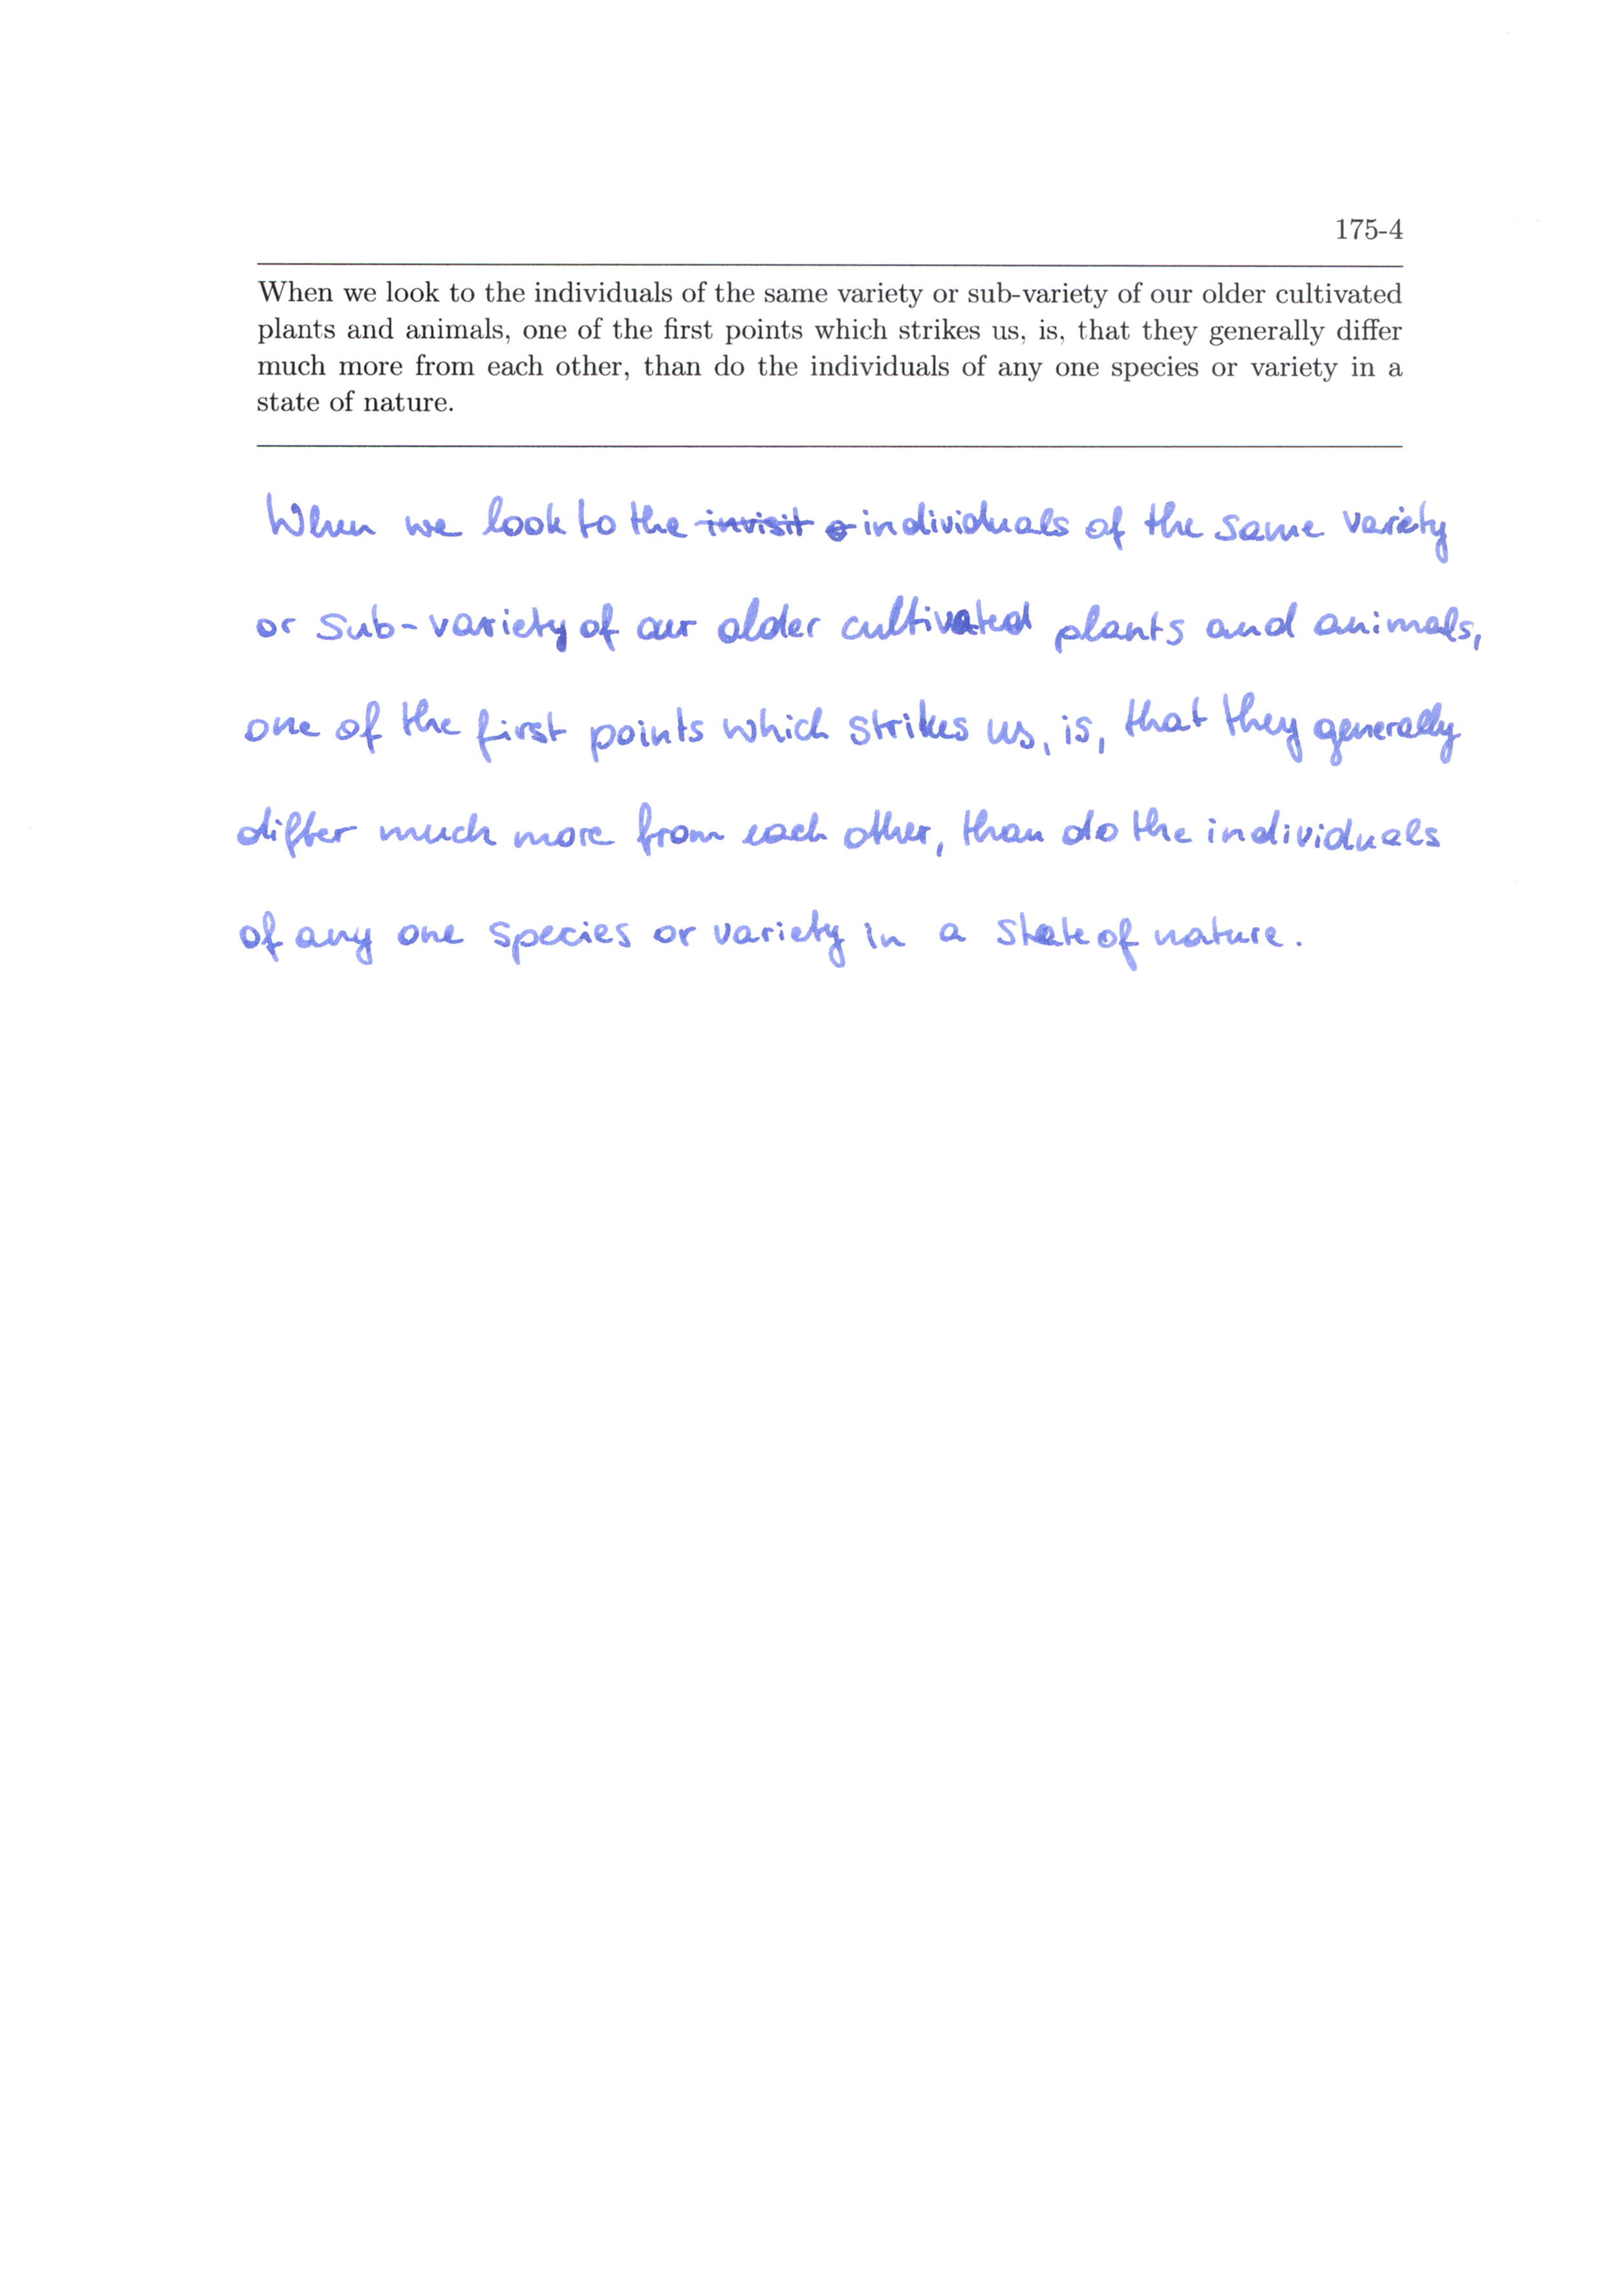 175-4
When we look to the individuals of the same variety or sub-variety of our older cultivated
plants and animals, one of the first points which strikes us, is, that they generally differ
much more from each other, than do the individuals of any one species or variety in a
state of nature.
When we look to the invisit individuals of the same variety
or sub-variety of our older cultivated plants and animals,
one of the first points which strikes us, is, that they generally
differ much more from each other, than do the individuals
of any one species or variety in a state of nature.